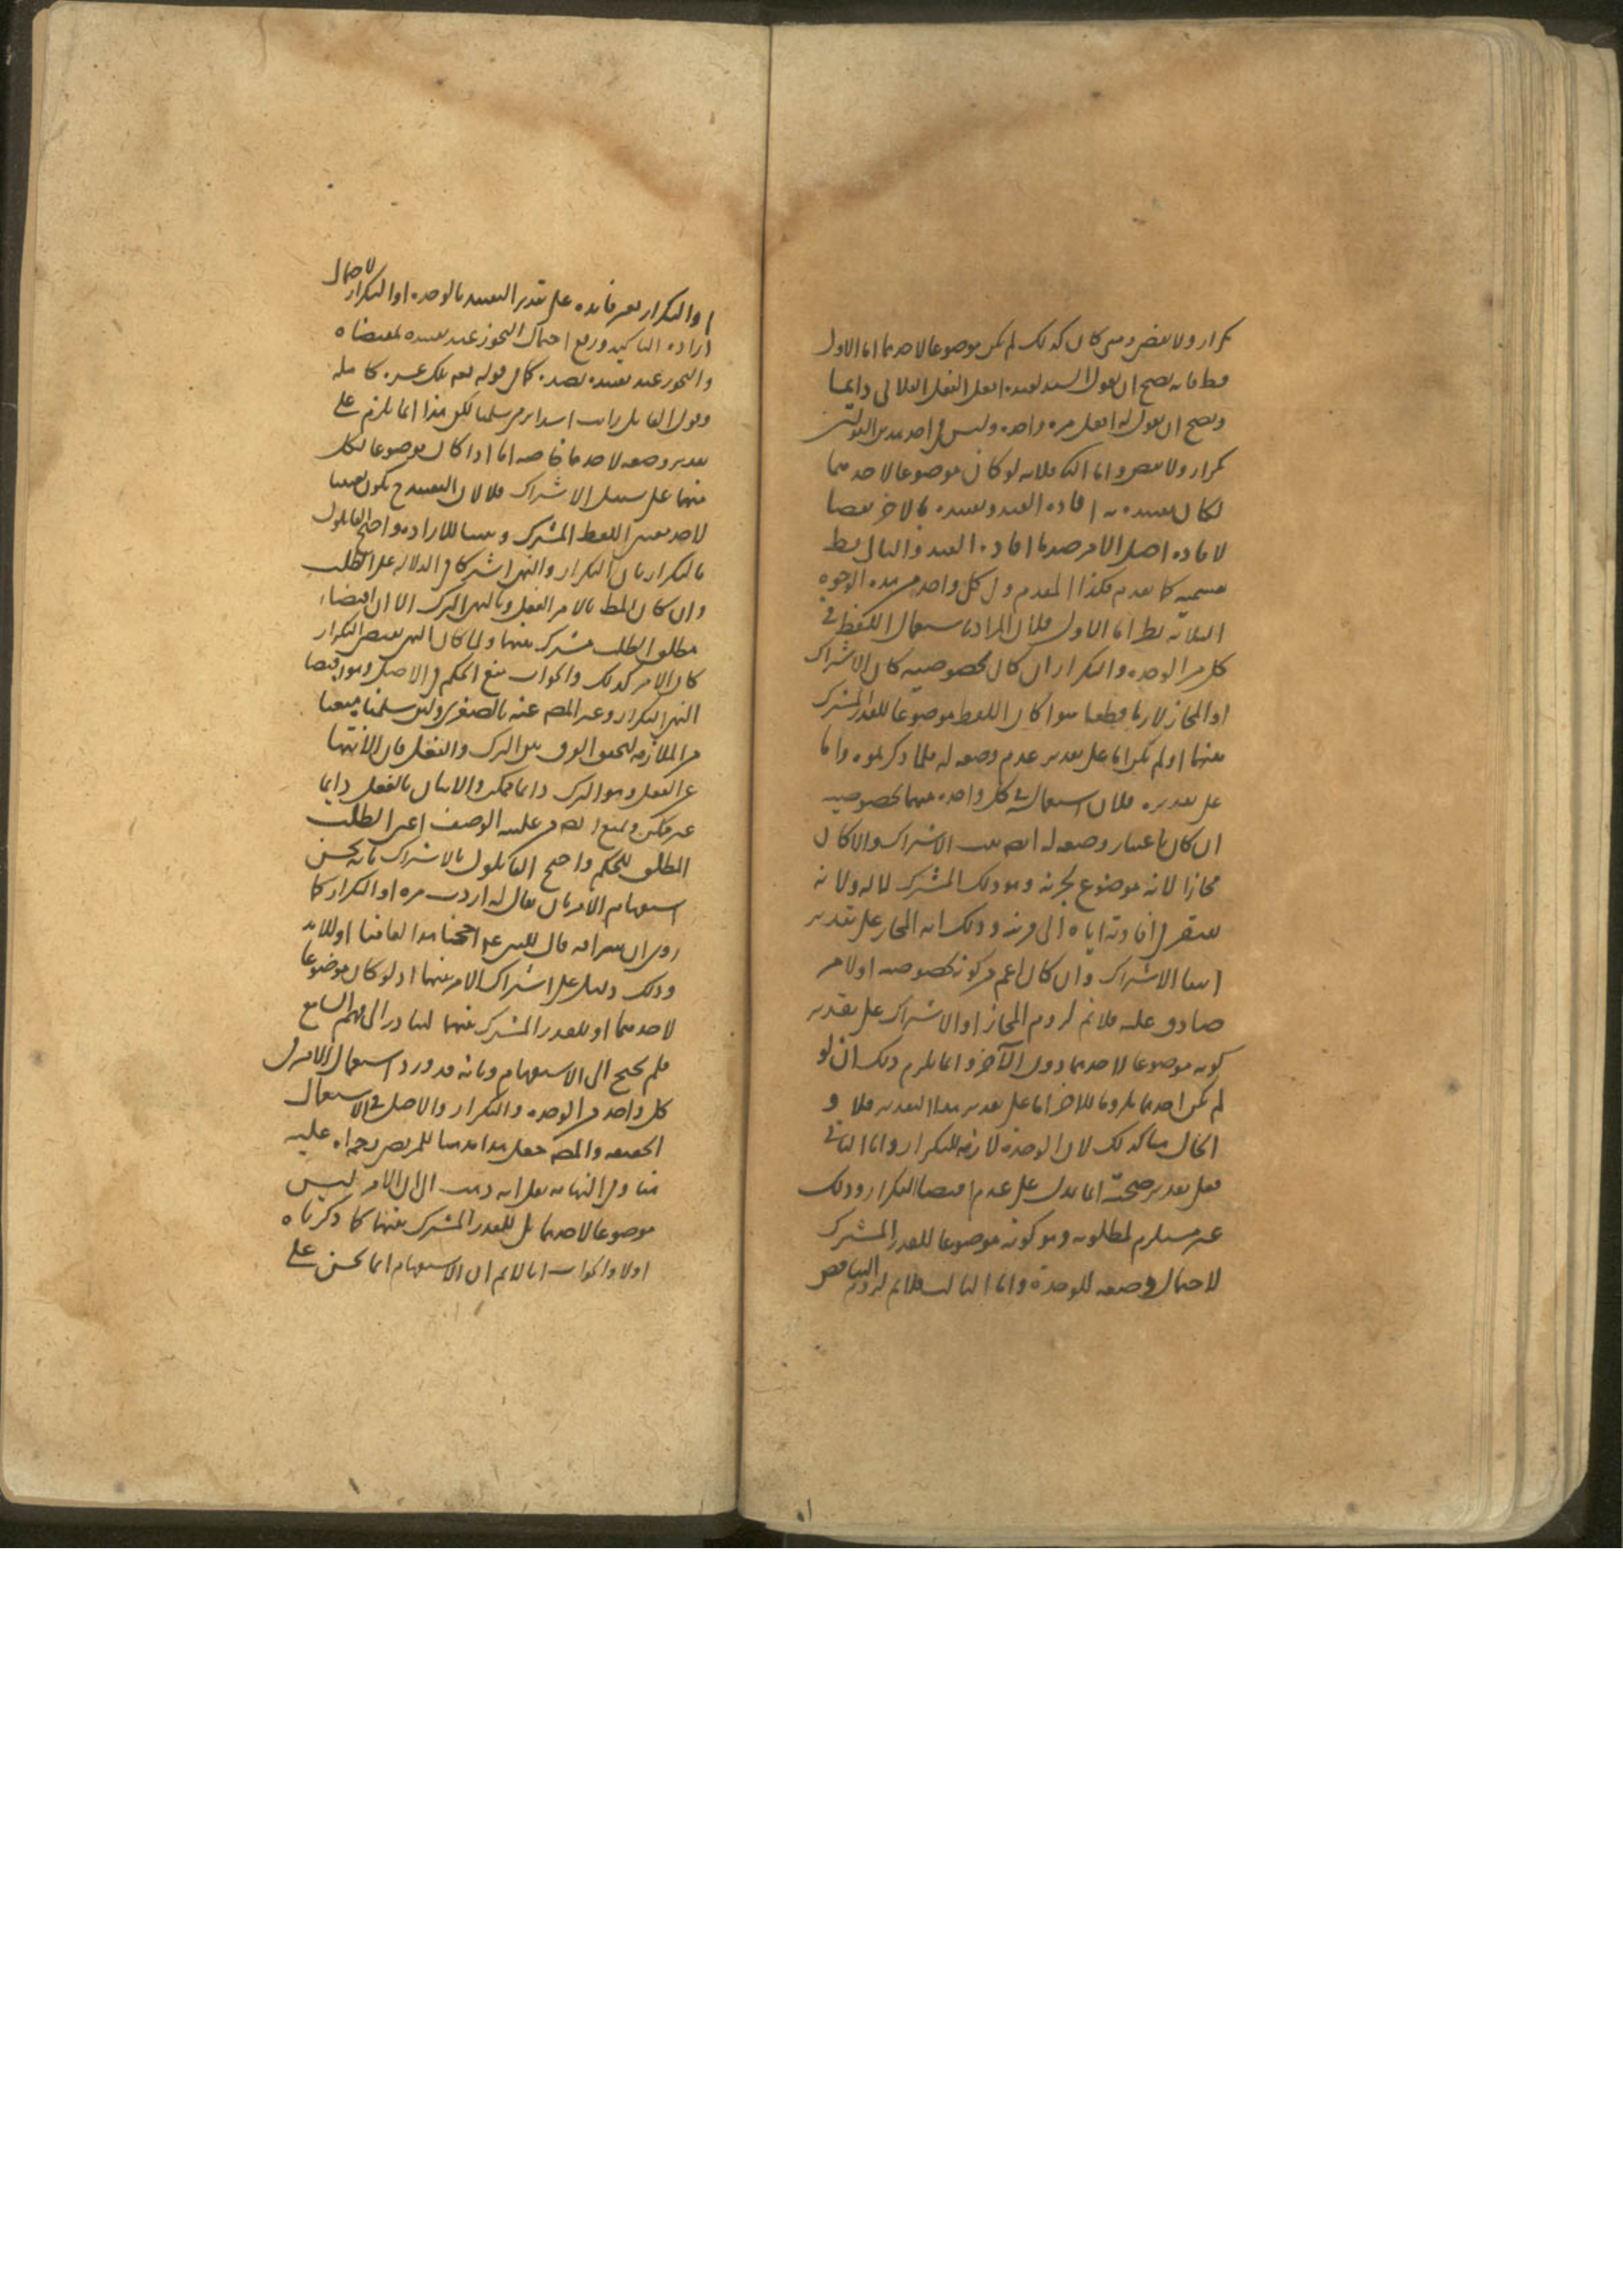 تكرار ولا نقض ومتى كان كذلك لم يكن موضوعا لاحدهما اما الاول
فظ فانه يصح ان يقول السيد لعبده افعل الفعل الفلاني دايما
ويصح ان يقول له افعل مره واحده وليس في احد هذين القولين
تكرار ولا نقض واما الثـ فلانه لو كان موضوعا لاحدهما
لكان تقييده به افاده القيد وتقييده بالاخر نقضا
لافاده اصل الامر ضد ما افاده القيد والتالى بط
بقسميه كما تقدم فكذا المقدم وفى كل واحد من هذه الوجوه
الثلاثه نظر اما الاول فلان المراد باستعمال اللفظ في
كل من الوحده والتكرار ان كان بخصوصيته كان الاشتراك
او المجاز لازما قطعا سوا كان اللفظ موضوعا للقدر المشترك
بينهما او لم يكن اما على تقدير عدم وضعه له فلما ذكرتموه واما
على تقديره فلان استعماله في كل واحد منهما بخصوصيته
ان كان باعتبار وضعه له ايضا ثبت الاشتراك والا كان
مجازا لانه موضوع لجزئه وهو ذلك المشترك لا له ولانه
يفتقر في افادته اياه الى قرينه وذلك آيه المجاز على تقدير
انتفا الاشتراك وان كان اعم من كونه بخصوصه او لا من
صادق عليه فلا نم لزوم المجاز او الاشتراك على تقدير
كونه موضوعا لاحدهما دون الآخر وانما يلزم ذلك ان لو
لم يكن احدهما ملزوما للاخر اما على تقدير هذا التقدير فلا و
الحال هنا كذلك لان الوحدة لازمه للتكرار واما الثانى
فعلى تقدير صحته انما يدل على عدم اقتضا التكرار وذلك
غير مستلزم لمطلوبه وهو كونه موضوعا للقدر المشترك
لاحتمال وضعه للوحدة واما الثالث فلا نم لزوم التناقض
او التكرار بغير فائده على تقدير التقييد بالوحده او التكرار لاحتمال
اراده التاكيد ورفع احتمال التجوز عند تقييده بمقتضاه
والتجوز عند تقييده بضده كما في قوله تعه تلك عشره كامله
وقول القايل رايت اسدا يرمى سلمنا لكن هذا انما يلزم على
تقدير وضعه لاحدهما خاصه اما اذا كان موضوعا لكل
منهما على سبيل الاشتراك فلا لان التقييد ح يكون تعيينا
لاحد معنيى اللفظ المشترك وبيانا للاراده واحتج القايلون
بالتكرار بان التكرار والنهى اشتركا في الدلاله على الطلب
وان كان المط بالامر الفعل وبالنهى الترك الا ان اقتضاء
مطلق الطلب مشترك بينهما ولما كان النهى يقتضى التكرار
كان الامر كذلك والجواب منع الحكم في الاصل وهو اقتضا
النهى التكرار وعبر المصـ عنه بالصغرى ولئن سلمنا منعنا
من الملازمه لتحقق الفرق بين الترك والفعل فان الانتها
عن الفعل وهو الترك دايما ممكن والاتيان بالفعل دايما
غير ممكن ونمنع ايضا من عليه الوصف اعنى الطلب
المطلق للحكم واحتج القايلون بالاشتراك بانه يحسن
استفهام الامر بان يقال له اردت مره او التكرار كما
روى ان سراقه قال للنبى عم احجنا هذا لعامنا او للابد
وذلك دليل على اشتراك الامر بينهما اذ لو كان موضوعا
لاحدهما او للقدر المشترك بينهما لتبادر الى فهم السامع
فلم يحتج الى الاستفهام وبانه قد ورد استعمال الامر فى
كل واحد من الوحده والتكرار والاصل في الاستعمال
الحقيقه والمصـ جعل هذا مذهبا للمرتضى رحمه اله عليه
هنا وفى النهايه نقل انه ذهب الى ان الامر ليس
موضوعا لاحدهما بل للقدر المشترك بينهما كما ذكرناه
اولا والجواب انا لا نم ان الاستفهام انما يحسن على